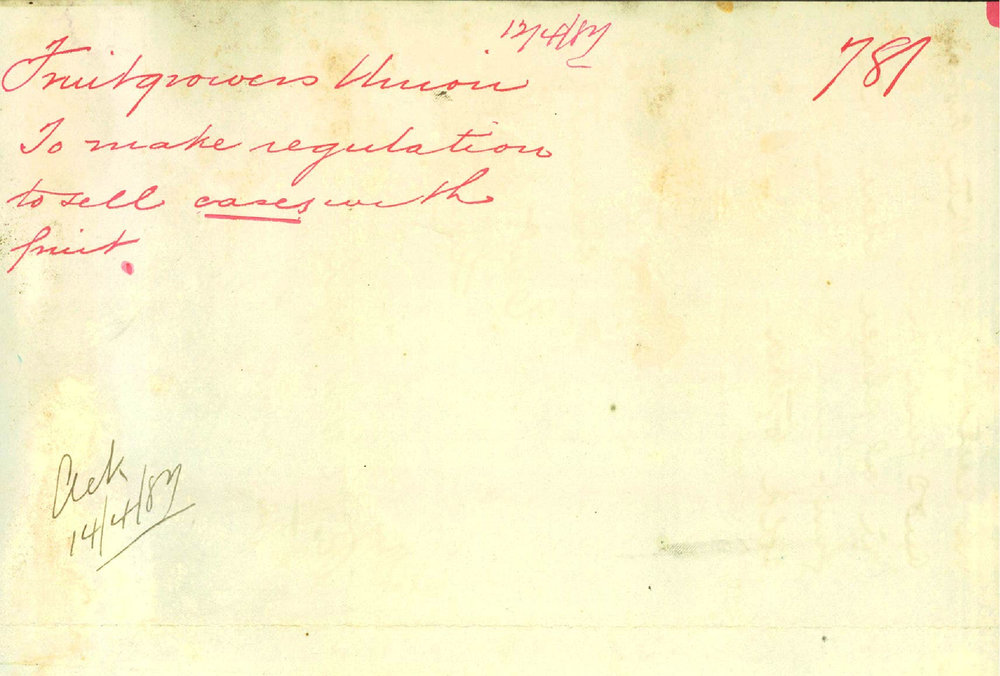 12/4/87
781
Fruitgrowers Union
To make regulation
to sell cases with
fruit.
Ack
14/4/87